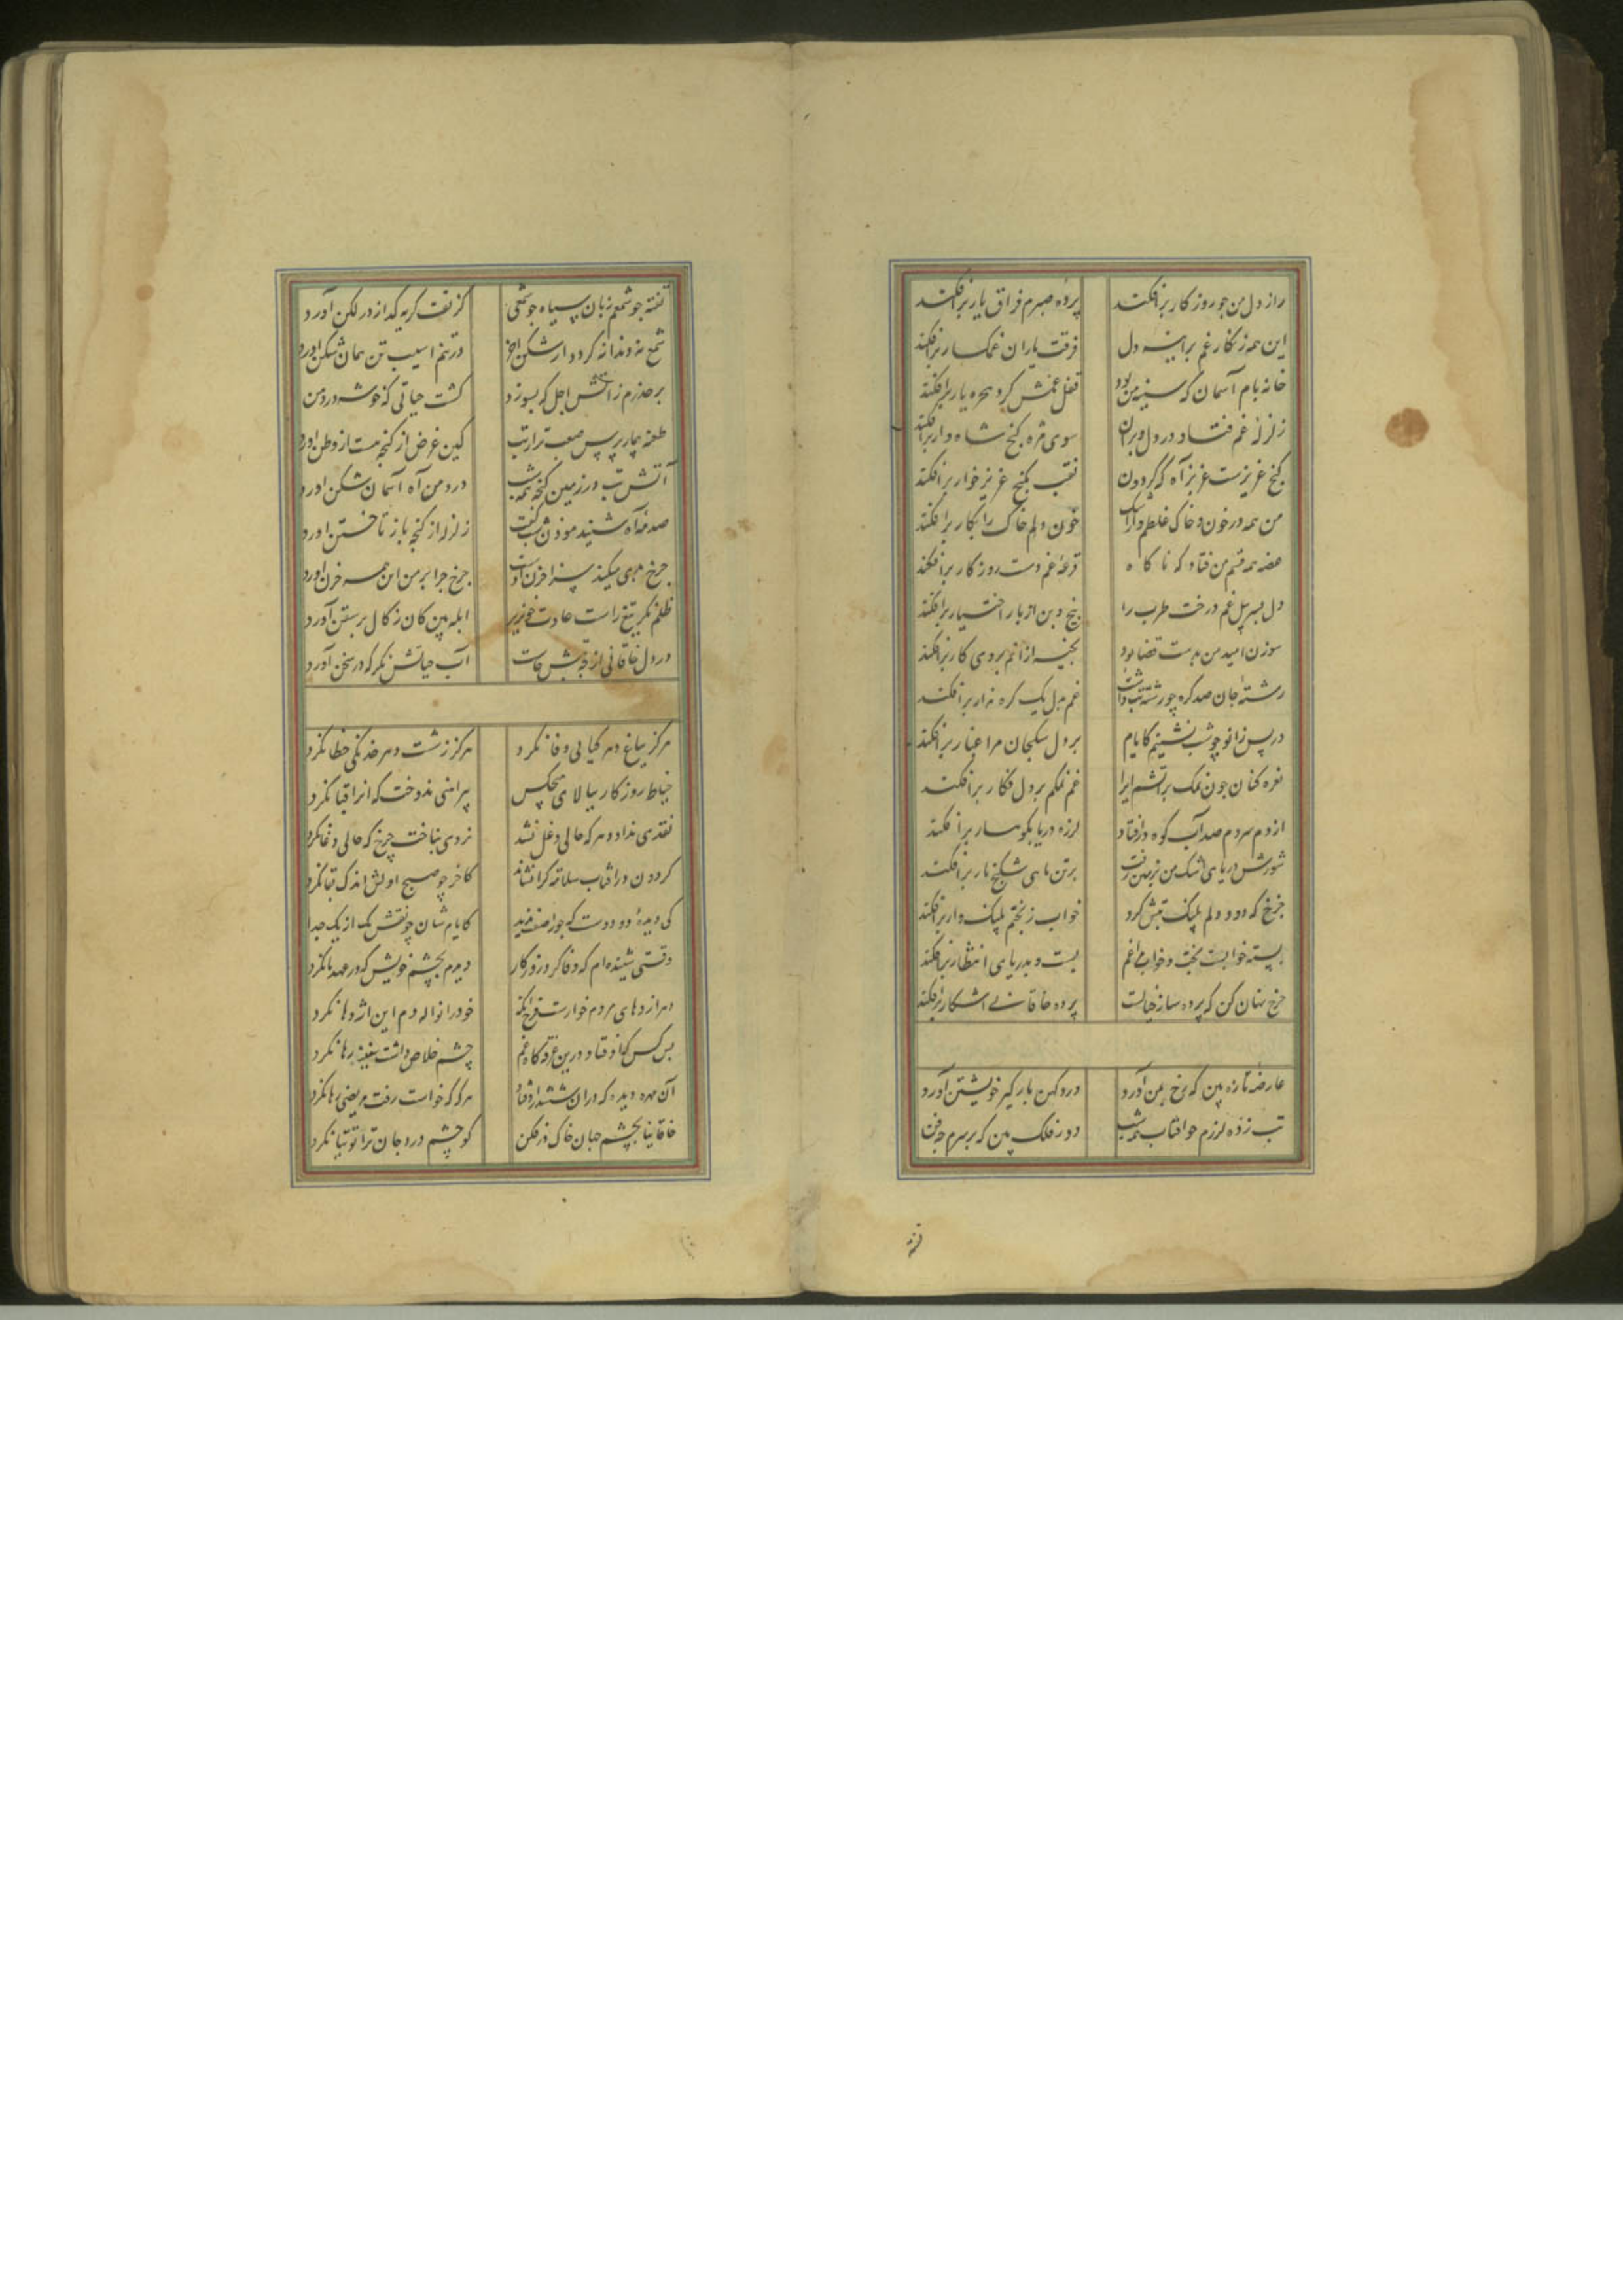 راز دل من جو روزکار برافکند پرده صبرم فراق یار برافکند
این همه زنکار غم برآینه دل فرقت یاران غمکسار برافکند
خانه بام آسمان که سینه من بود قفل غمش کرد
زلزله غم فتاد در دل ویران سوی مژه کنج شاه وار برافکند
کنج عزیزست عزیز آه که کردون نقب بکنج عزیز خوار برافکند
من همه در خون و خاک غلطم خون دلم خاک را بکار برافکند
غصه همه قسم من فتاد که ناکاه قرعه غم دست روزکار برافکند
دل بسر پل غم درخت طرب را بیخ و بن از بار اختیار برافکند
سوزن امید من بدست قضا بود بخیه از انم بروی کار برافکند
رشته جان صد کره چو رشته تب داشت غم بدل یک کره هزار برافکند
در پس زانو چو شب نشینم کایام بر دل سکجان مرا غبار برافکند
نعره کنان چون نمک براتشم ایرا غم نمکم بر دل فکار برافکند
از دم سردم صد آب کوه در افتاد لرزه دریا بکوهسار برافکند
شورش دریای اشک من بزمین رفت بر تن ماهی شکنج مار برافکند
چرخ که دود دلم پلنک تنش کرد خواب ز بختم پلنک وار برافکند
بسته خوابست بخت و خواب مرا غم بست و بدریای انتظار برافکند
چرخ نهان کن که پرده ساز خیالت پرده خاقانی اشکار برافکند
عارضه تازه بین که رخ بمن آورد درد کهن بار کیر خویشتن آورد
تب زده لرزم جو افتاب همه شب دور فلک بین که بر سرم چه فتن
تفته
تفته جو شمعم زبان سیاه جو شمعی کز تف کریه کداز در لکن آورد
شمع نه دندانه کردد از شکن اخر در تنم اسیب تب همان شکن اورد
بر حذرم ز آتش اجل که بسوزد کشت حیاتی که خوشه در دمن
طعنه بیمار پرس صعب‌تر از تب کین عرض از کنجه نیست از وطن اورد
آتش تب در زمین کنجه همه شب درد من آه آسمان شکن اورد
صدمه آه شنید موذن شب گفت زلزله از کنجه باز تاختن اورد
چرخ بدی میکند سزا حزن اوست چرخ جرا بر من این همه حزن اورد
ظلم نکر تیغ راست عادت خونریز ابله بین کان ز کال برستن آورد
در دل خاقانی از چه آتش خاست آب حیاتش نکر که در سخن آورد
هرکز بباغ دهر کیایی وفا نکرد هرکز ز شست دهر خدنکی خطا نکرد
خیاط روزکار ببالای هیچکس پیراهنی ندوخت که انرا قبا نکرد
نقدی نداد دهر که حالی دغل نشد نردی نباخت چرخ که حالی دغا نکرد
کردون در افتاب سلامت کرا نشاند کاخر چو صبح اولش اندک بقا نکرد
کی دیده دو دوست که جوزا صفت بدند کایام شان چو نقش یک از یک جدا
وقتی شنیده‌ام که وفا کرد روزکار دیدم بچشم خویش که در عهد ما نکرد
دهر اژدهای مردم خوارست فرخ انکه خود را نواله دم این اژدها نکرد
بس کس کاوفتاد درین غرقه کاه غم چشم خلاص داشت سفینه رها نکرد
آن مهره دیده که دران ششدر افتاد هرکه که خواست رفت حریفی رها نکرد
خاقانیا بچشم جهان خاک در فکن کو چشم درد جان ترا توتیا نکرد